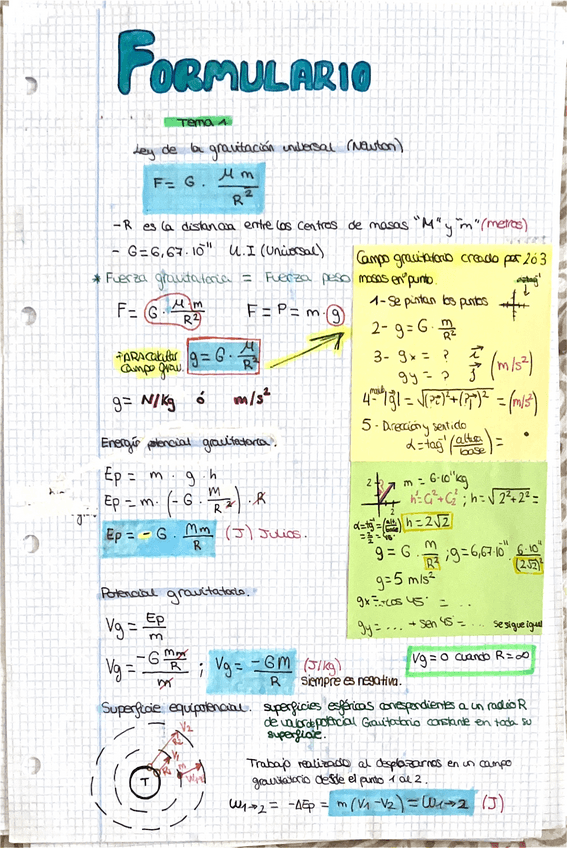 FORMULARIO
Tema 1
Ley de la gravitación universal (Newton)
F = G · M m / R²
- R es la distancia entre los centros de masas "M" y "m" (metros)
- G = 6,67 · 10⁻¹¹ U.I (Universal)
* Fuerza gravitatoria = Fuerza peso
F = G · M · m / R²   F = P = m · g
PARA calcular campo grav.
g = G · M / R²
g = N/kg ó m/s²
Campo gravitatorio creado por 2 ó 3
masas en punto.
1 - Se pintan los puntos
2 - g = G · m / R²
3 - gx = ? i
gy = ? j (m/s²)
4 - |g| = √(?i)² + (?j)² = (m/s²)
5 - Dirección y sentido
α = tag⁻¹ (altura / base) =
Energía potencial gravitatoria.
Ep = m · g · h
Ep = m · (- G · m / R²) · R
Ep = - G · Mm / R (J) Julios.
m = 6 · 10¹¹ kg
h² = C₁² + C₂² ; h = √2² + 2² =
h = 2√2
g = G · m / R² ; g = 6,67 · 10⁻¹¹ · 6 · 10¹¹ / (2√2)²
g = 5 m/s²
gx = - cos 45° = ...
gy = ... + sen 45 = ... se sigue igual
Potencial gravitatorio.
Vg = Ep / m
Vg = -G Mm / R / m ; Vg = -GM / R (J/kg)
siempre es negativa.
Vg = 0 cuando R = ∞
Superficie equipotencial. superficies esféricas correspondientes a un radio R
de valor de potencial Gravitatorio constante en toda su
superficie.
V₂
R₂
V₁
R₁
m
T
Trabajo realizado al desplazarnos en un campo
gravitatorio desde el punto 1 al 2.
W₁→₂ = -ΔEp = m (V₁ - V₂) = W₁→₂ (J)